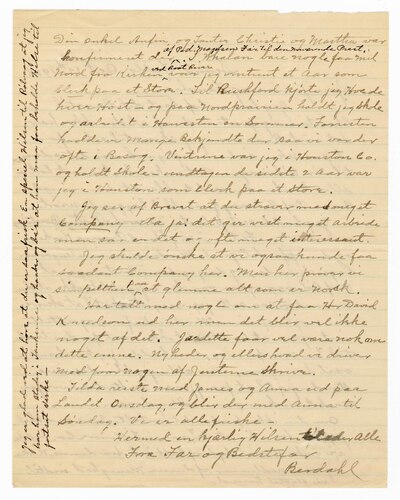 Din onkel Anfin og Tanter Christie og Martha var
af Past. Magelssen Far til den nuværende Prest.
konfirmeret i Whalan bare nogle faa mil
ved Root River
Nord fra Kirken, var jeg omtrent et Aar som
Clerk paa et Store. Til Rushford kjørte jeg Hvede
hver Høst og paa Nordprairien holdt jeg skole
og arbeidet i Harvesten en Sommer. Foruten
havde vi Mange Bekjendte der saa vi var der
ofte i Besøg. Vintrene var jeg i Houston Co.
og holdt Skole undtagen de sidste 2 Aar var
jeg i Houston som Clerk paa et Store.
Jeg ser af Brevet at du strever med meget
Company etc ja, det gir vist meget arbeide
men saa er det og ofte meget interessant.
Jeg skulde ønske at vi ogsaa kunde faa
saadant Company her. Men her prøver vi
simpelthen at glemme alt som er Norsk
Har talt med nogle om at faa Hr David
Knudson ud her men det blir vel ikke
noget af det. Ja dette faar vel være nok om
dette emne. Nyheder og ellers hvad vi driver
med faar nogen af Jentene skrive.
Tilda reiste med James og Anna ud paa
Landet Onsdag, og blir der med Anna til
Søndag. Vi er alle friske –
Hermed en kjærlig Hilsen til eder Alle
Fra Far og Bedstefar
Berdahl
Jeg er glad ved at høre at du er saa frisk, en speciel Hilsen til
har ham stadig i Tankerne og haaber og ber at han maa faa beholde Helsen til